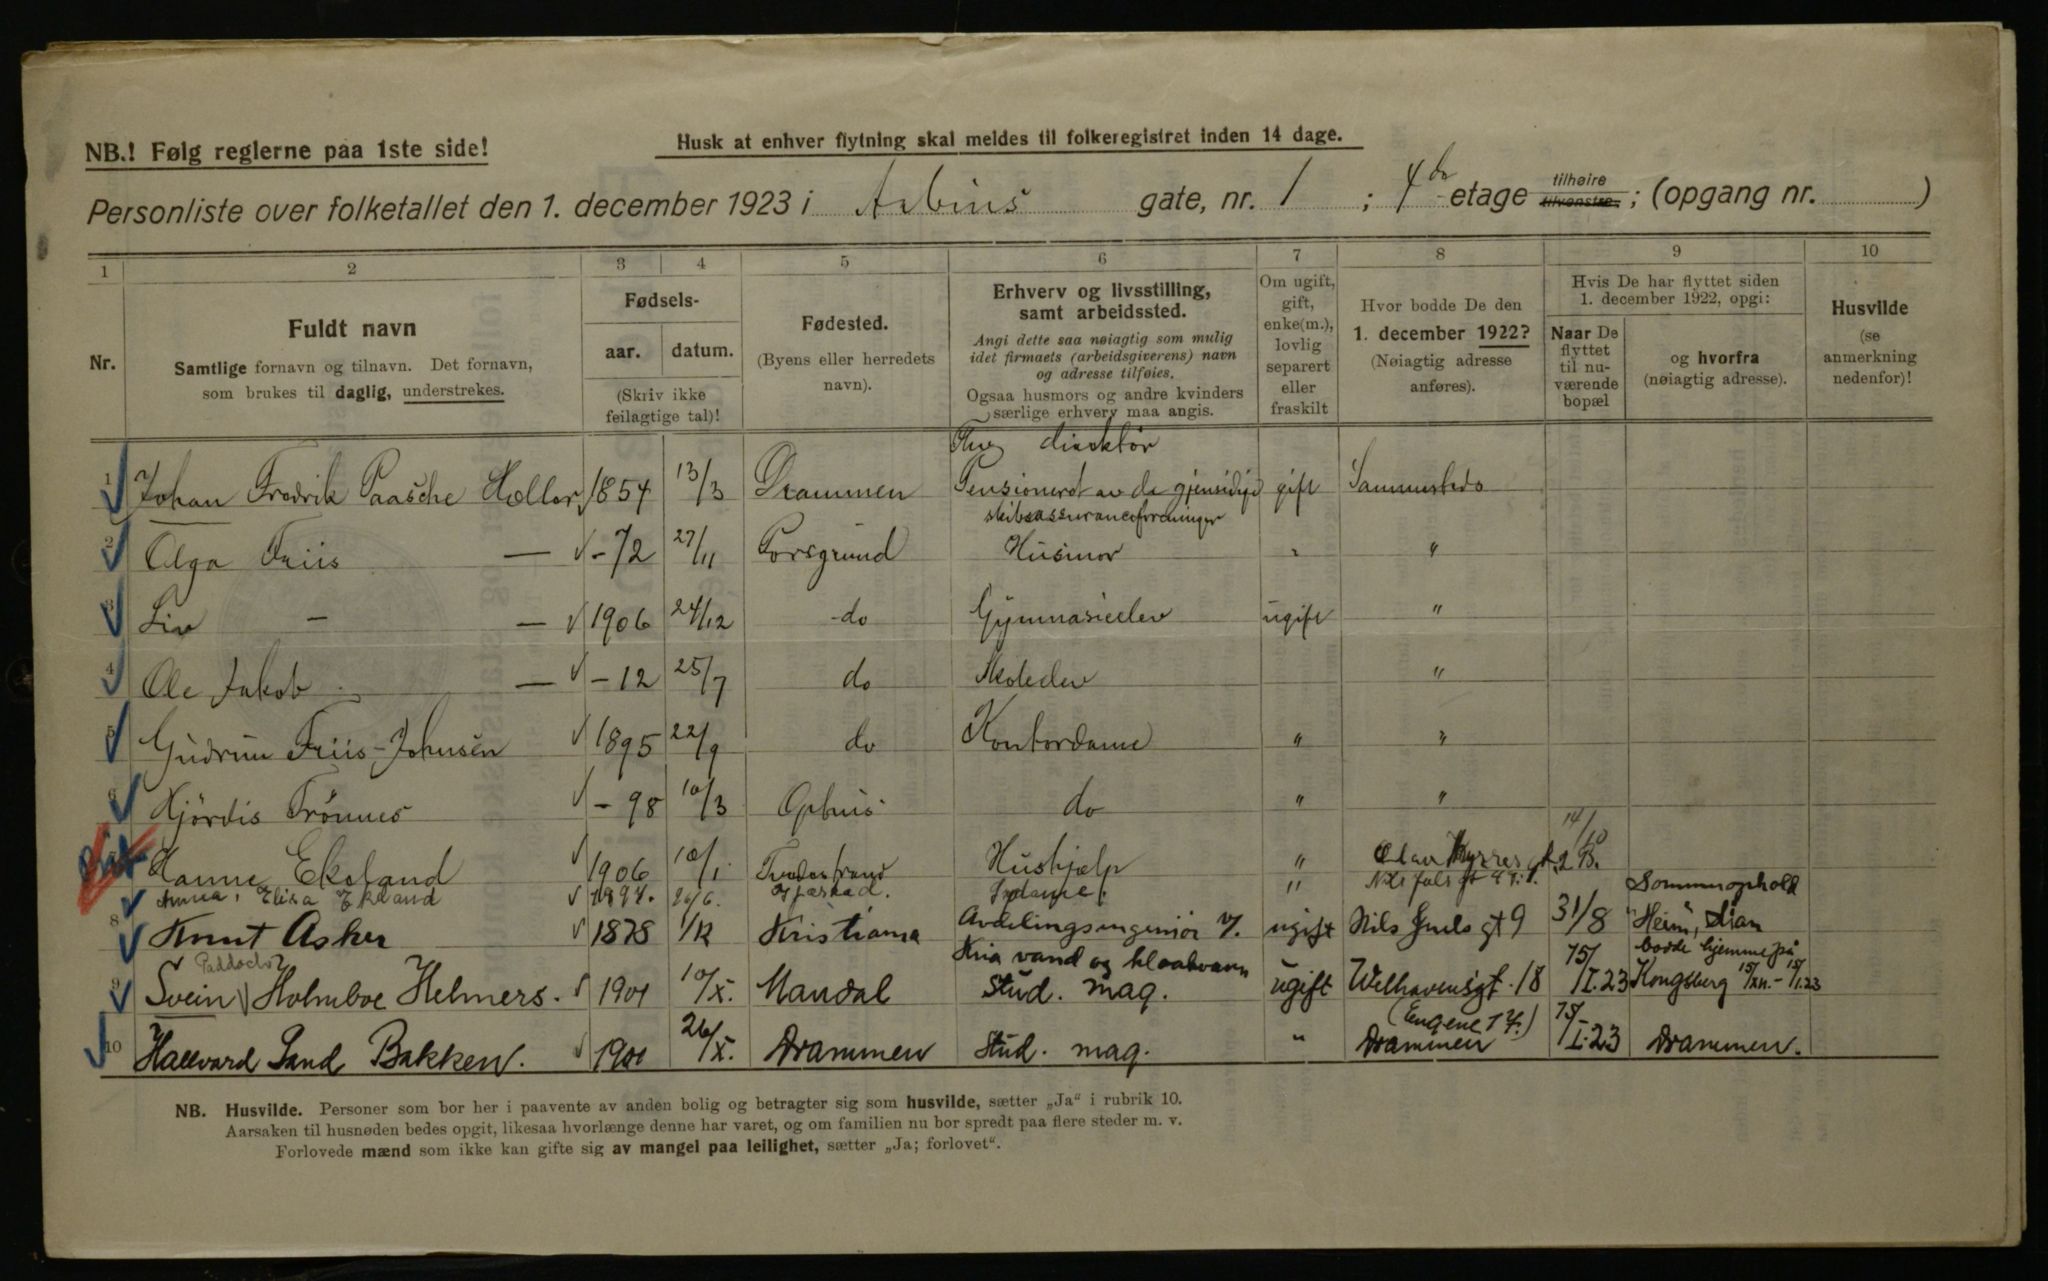 NB.! Følg reglerne paa 1ste side!
Husk at enhver flytning skal meldes til folkeregistret inden 14 dage.
Personliste over folketallet den 1. december 1923 i Arbins gate, nr. 1 ; 4de etage tilhøire tilvenstre ; (opgang nr. )
1 2 3 4 5 6 7 8 9 10
Nr.
Fuldt navn
Samtlige fornavn og tilnavn. Det fornavn,
som brukes til daglig, understrekes.
Fødsels-
aar. datum.
(Skriv ikke
feilagtige tal)!
Fødested.
(Byens eller herredets
navn).
Erhverv og livsstilling,
samt arbeidssted.
Angi dette saa nøiagtig som mulig
idet firmaets (arbeidsgiverens) navn
og adresse tilføies.
Ogsaa husmors og andre kvinders
særlige erhverv maa angis.
Om ugift,
gift,
enke(m.),
lovlig
separert
eller
fraskilt
Hvor bodde De den
1. december 1922?
(Nøiagtig adresse
anføres).
Hvis De har flyttet siden
1. december 1922, opgi:
Naar De
flyttet
til nu-
værende
bopæl
og hvorfra
(nøiagtig adresse).
Husvilde
(se
anmerkning
nedenfor)!
direktør
1 Johan Fredrik Paasche Heller 1854 13/3 Drammen Pensionert av de gjensidige gift Sammesteds
skibsassuranceforeninger
2 Olga Friis — - 72 27/11 Porsgrund Husmor " "
3 Liv - — 1906 24/12 do Gymnasieelev ugift "
4 Ole Jakob — - 12 25/7 do Skoleelev "
5 Gudrun Friis-Johnsen 1895 22/9 do Kontordame " "
6 Hjördis Trönnes - 98 10/3 Ophus do " "
7 Hanne Ekeland 1906 10/1 Hushjelp " Olav Kyrres gt. 2 B. 14/10
Anna, Elisa Ekeland 1897. 26/6. "
8 Knut Asker 1878 1/12 Kristiania Avdelingsingeniør v/. ugift Nils Juels gt 9 31/8 Sommerophold "Heim",
Kria vand og kloakvæsen
Paddock
9 Svein Holmboe Helmers. 1901 10/X. Mandal Stud. mag. ugift Welhavensgt. 18 15/I.23 bodde hjemme på Kongsberg 15/XII.-15/I.23
10 Hallvard Sand Bakken. 1901 26/X. Drammen Stud. mag. " Drammen 15/I.23 Drammen.
NB. Husvilde. Personer som bor her i paavente av anden bolig og betragter sig som husvilde, sætter „Ja" i rubrik 10.
Aarsaken til husnøden bedes opgit, likesaa hvorlænge denne har varet, og om familien nu bor spredt paa flere steder m. v.
Forlovede mænd som ikke kan gifte sig av mangel paa leilighet, sætter „Ja; forlovet".